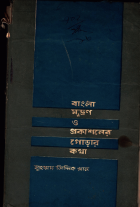 বাংলা
মুদ্রণ
ও
প্রকাশনের
গোড়ার
কথা
মুহম্মদ সিদ্দিক খান